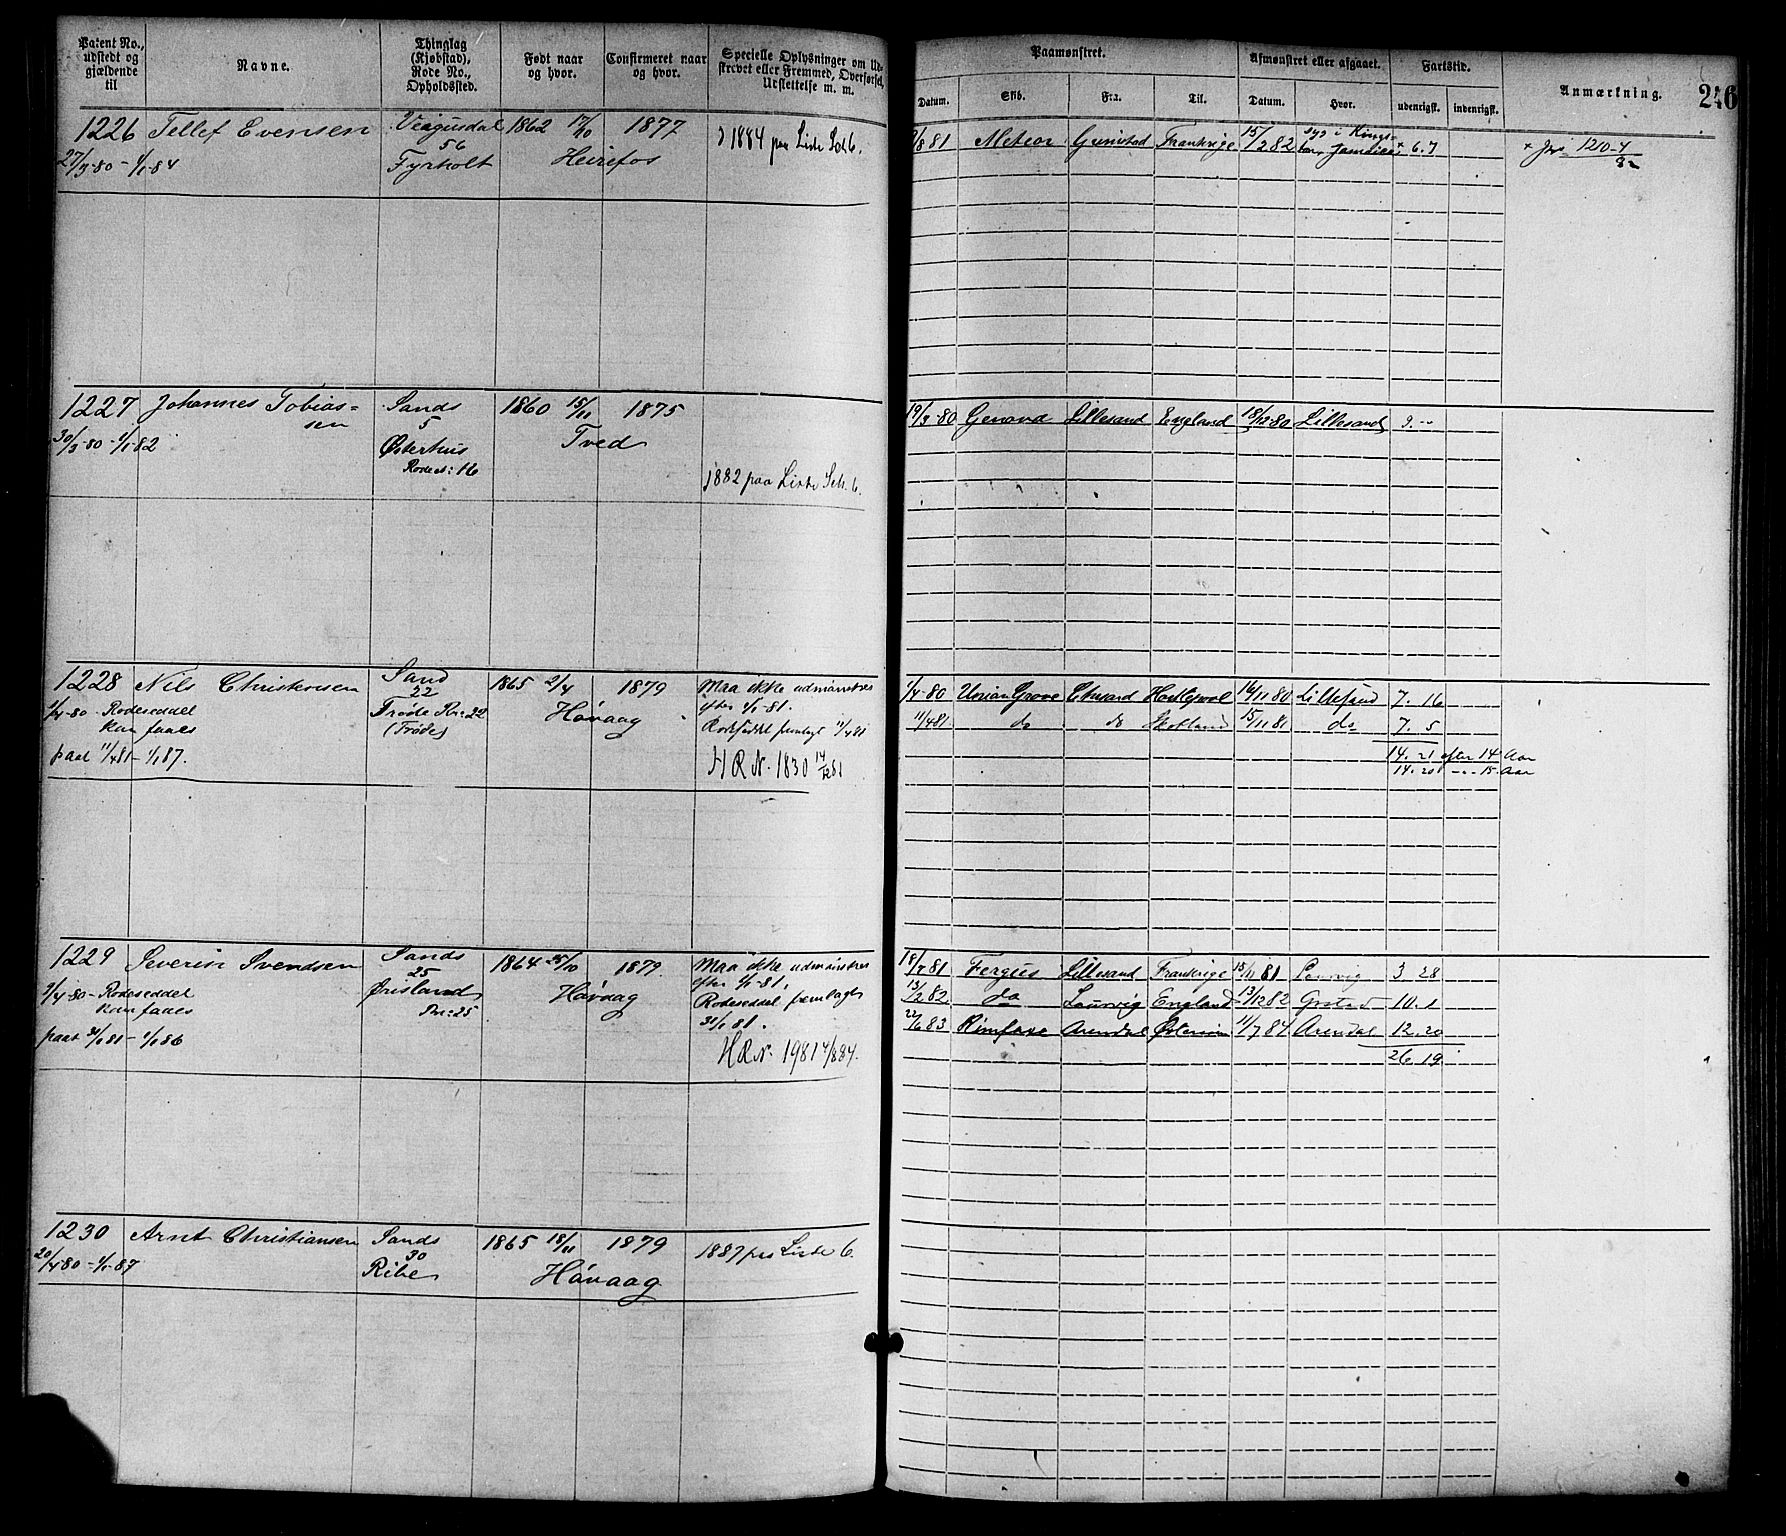 Patent No., udstedt og gjældende til
Navne.
Thinglag (Kjøbstad), Rode No., Opholdssted.
Født naar og hvor.
Confirmeret naar og hvor.
Specielle Oplysninger om Udskrevet eller Fremmed, Overførsel, Udslettelse m. m.
Paamønstret.
Datum.
Skib.
Fra.
Til.
Afmønstret eller afgaaet.
Datum.
Hvor.
Fartstid.
udenrigsk.
indenrigsk.
Anmærkning.
246
1226 Tellef Evensen Veigusdal 1862 17/10 1877
27/3-80 - 1/1-84 56 Fyrholt Heirefos
1884 paa Liste Sch 6.
/8 81 Meteor Grimstad Frankrige 15/2 82 syg i Kings- + 6.7
ton, Jamaica
1210-4
1227 Johannes Tobias= Sands 1860 15/11 1875
sen 5
30/3-80 - 1/1-82 Østerhus Tved
Rode №: 16
1882 paa Liste Sch. 6.
19/3-80 Gerard Lillesand England 18/12 80 Lillesand 9.--
1228 Nils Christensen Sand 1865 2/4 1879 Maa ikke udmønstres
22 efter 1/1-81.
1/4-80 - Rodeseddel Trøde Rn: 22 Høvaag
kun faaes (Trøde) Rodeseddel fremlagt 11/4 81
paat 11/4 81 - 1/1 87. H R №. 1830 14/12 81
1/4-80 Grove Hartlepool 14/11 80 Lillesand 7. 16
11/4 81 do do Skotland 15/11 81 do 7. 5
14. 21 efter 14 Aar
14. 20 -"- 15 Aar
1229 Severin Svendsen Sands 1864 25/10 1879 Maa ikke udmønstres
25 efter 1/1-81.
2/4-80 - Rodeseddel Ørisland Høvaag Rodeseddel fremlagt
kun faaes Rn: 25 31/1 81.
paat 31/1 81 - 1/1 86 H R №. 1981 4/8 84.
18/4 81 Fergus Lillesand Frankrige 15/11 81 3. 28
13/2 82 do Laurvig England 13/12 82 10. 1
22/6 83 Rimfaxe Arendal Østersøen 11/7 84 Arendal 12. 20
26. 19
1230 Arnt Christiansen Sands 1865 18/11 1879 1887 paa Liste 6.
20/4 80 - 1/1-87 30 Ribe Høvaag